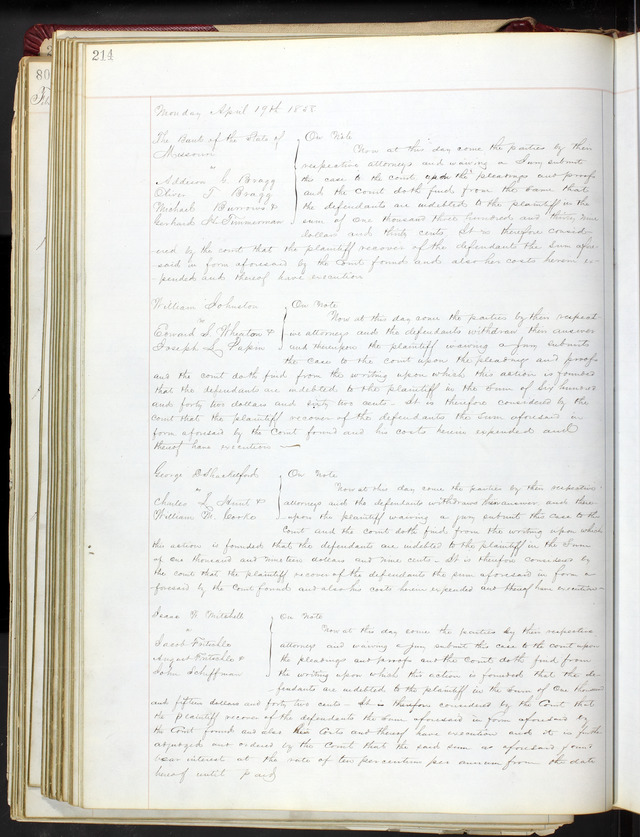 214
80
Monday April 19th 1858
The Bank of the State of Missouri
vs
Addison C Bragg
Oliver T. Bragg
Michael Burrows &
Gerhard H. Timmerman
On Note
Now at this day come the parties by their
respective attorneys and waiving a Jury submit
this case to the court upon the pleadings and proofs
and the court doth find from the same that
the defendants are indebted to the plaintiff in the
sum of One thousand three hundred and thirty nine
dollars and thirty cents It is therefore consid-
-ered by the court that the plaintiff recover of the defendants the Sum afore-
-said in form aforesaid by the Court found and also his costs herein ex-
-pended and thereof have execution
William Johnston
vs
Edward S. Wheaton &
Joseph L. Papin
On Note
Now at this day come the parties by their respect-
ive attorneys and the defendants withdraw their answer
and thereupon the plaintiff waiving a jury submits
the case to the court upon the pleadings and proofs
and the court doth find from the writing upon which this action is founded
that the defendants are indebted to the plaintiff in the Sum of Six hundred
and forty two dollars and sixty two cents. It is therefore considered by the
court that the plaintiff recover of the defendants the Sum aforesaid in
form aforesaid by the Court found and his costs herein expended and
thereof have execution
George D Shackelford
vs
Charles L. Hunt &
William M. Cooke
On Note
Now at this day come the parties by their respective
attorneys and the defendants withdraws their answer and there-
-upon the plaintiff waiving a jury submit this case to the
Court and the court doth find from the writing upon which
this action is founded that the defendants are indebted to the plaintiff in the Sum
of one thousand and nineteen dollars and nine cents - It is therefore considered by
the court that the plaintiff recover of the defendants the sum aforesaid in form a-
-foresaid by the Court found and also his costs herein expended and thereof have execution -
Isaac W Mitchell
vs
Jacob Fritschle
August Fritschle &
John Schiffman
On Note
Now at this day come the parties by their respective
attorneys and waiving a Jury submit this case to the court upon
the pleadings and proofs and the Court doth find from
the writing upon which this action is founded that the de-
-fendants are indebted to the plaintiff in the sum of One thousand
and fifteen dollars and forty two cents - It is therefore considered by the Court that
the plaintiff recover of the defendants the Sum aforesaid in form aforesaid by
the Court found and also his Costs and thereof have execution and it is further
adjudged and ordered by the Court that the said sum so aforesaid found
bear interest at the rate of ten per centum per annum from the date
hereof until paid